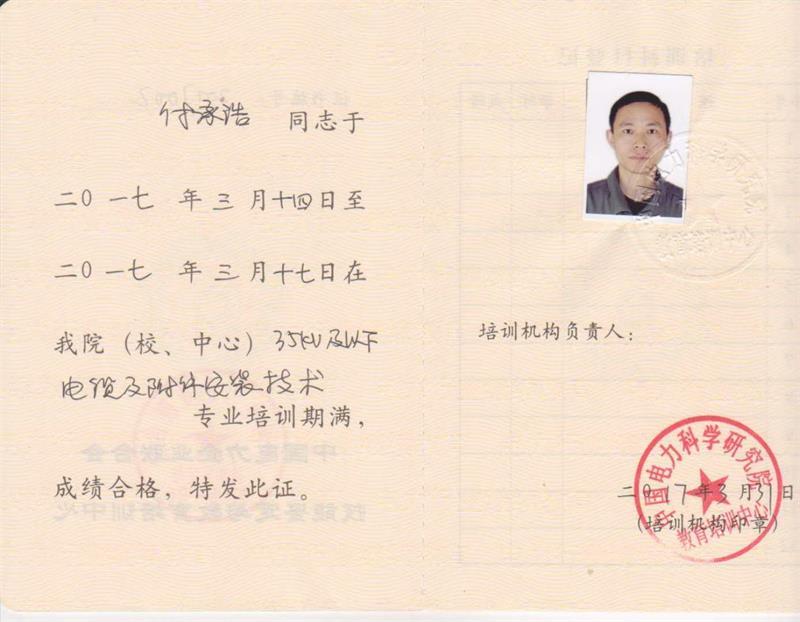 付承浩 同志于
二〇一七 年 三 月十四日至
二〇一七 年 三 月十七日在
我院（校、中心）35kV及以下
电缆及附件安装技术
专业培训期满，
成绩合格，特发此证。
培训机构负责人：
中国电力科学研究院
二〇一七年3月31日
（培训机构印章）
教育培训中心